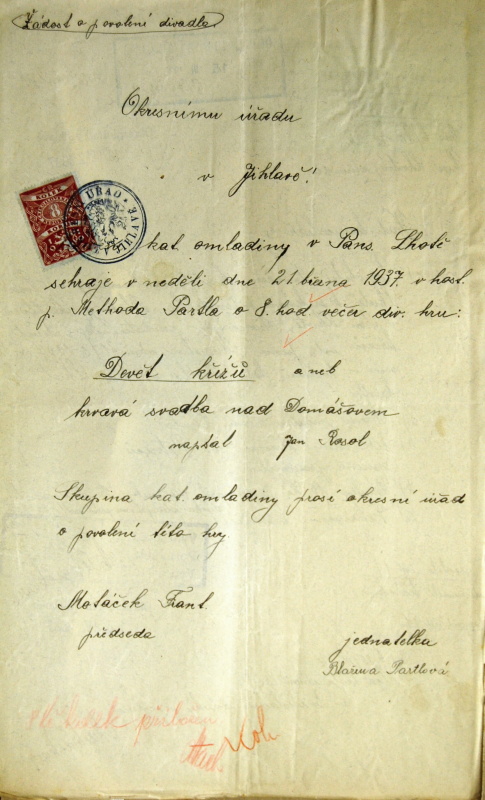 Žádost o povolení divadla
Okresnímu úřadu
v Jihlavě!
KOLEK
8
ÚŘAD
V JIHLAVĚ
kat. omladiny v Pans. Lhotě
sehraje v neděli dne 21. března 1937. v host.
p. Methoda Partla o 8. hod večer div. hru:
Devět křížů aneb
krvavá svadba nad Domášovem
napsal Jan Rosol
Skupina kat. omladiny prosí okresní úřad
o povolení této hry
Matáček Frant.
předseda
jednatelka
Blažena Partlová
kolek